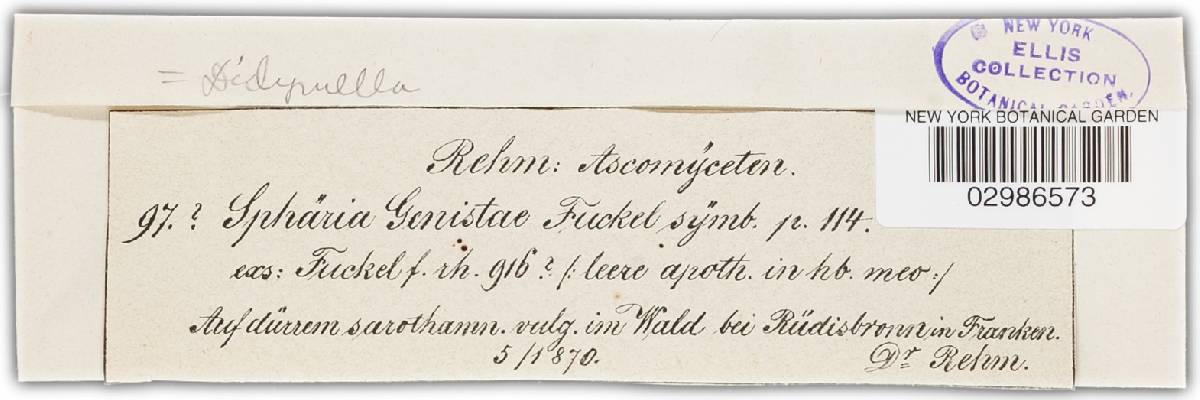 = Didymella
NEW YORK
ELLIS
COLLECTION
BOTANICAL GARDEN.
NEW YORK BOTANICAL GARDEN
02986573
Rehm: Ascomÿceten.
97.? Sphäria Genistae Fuckel sÿmb. p. 114.
exs: Fuckel f. rh. 916? /: leere apoth. in hb. meo :/
Auf dürrem sarothamn. vulg. im Wald bei Rüdisbronn in Franken.
5/1870. Dr Rehm.